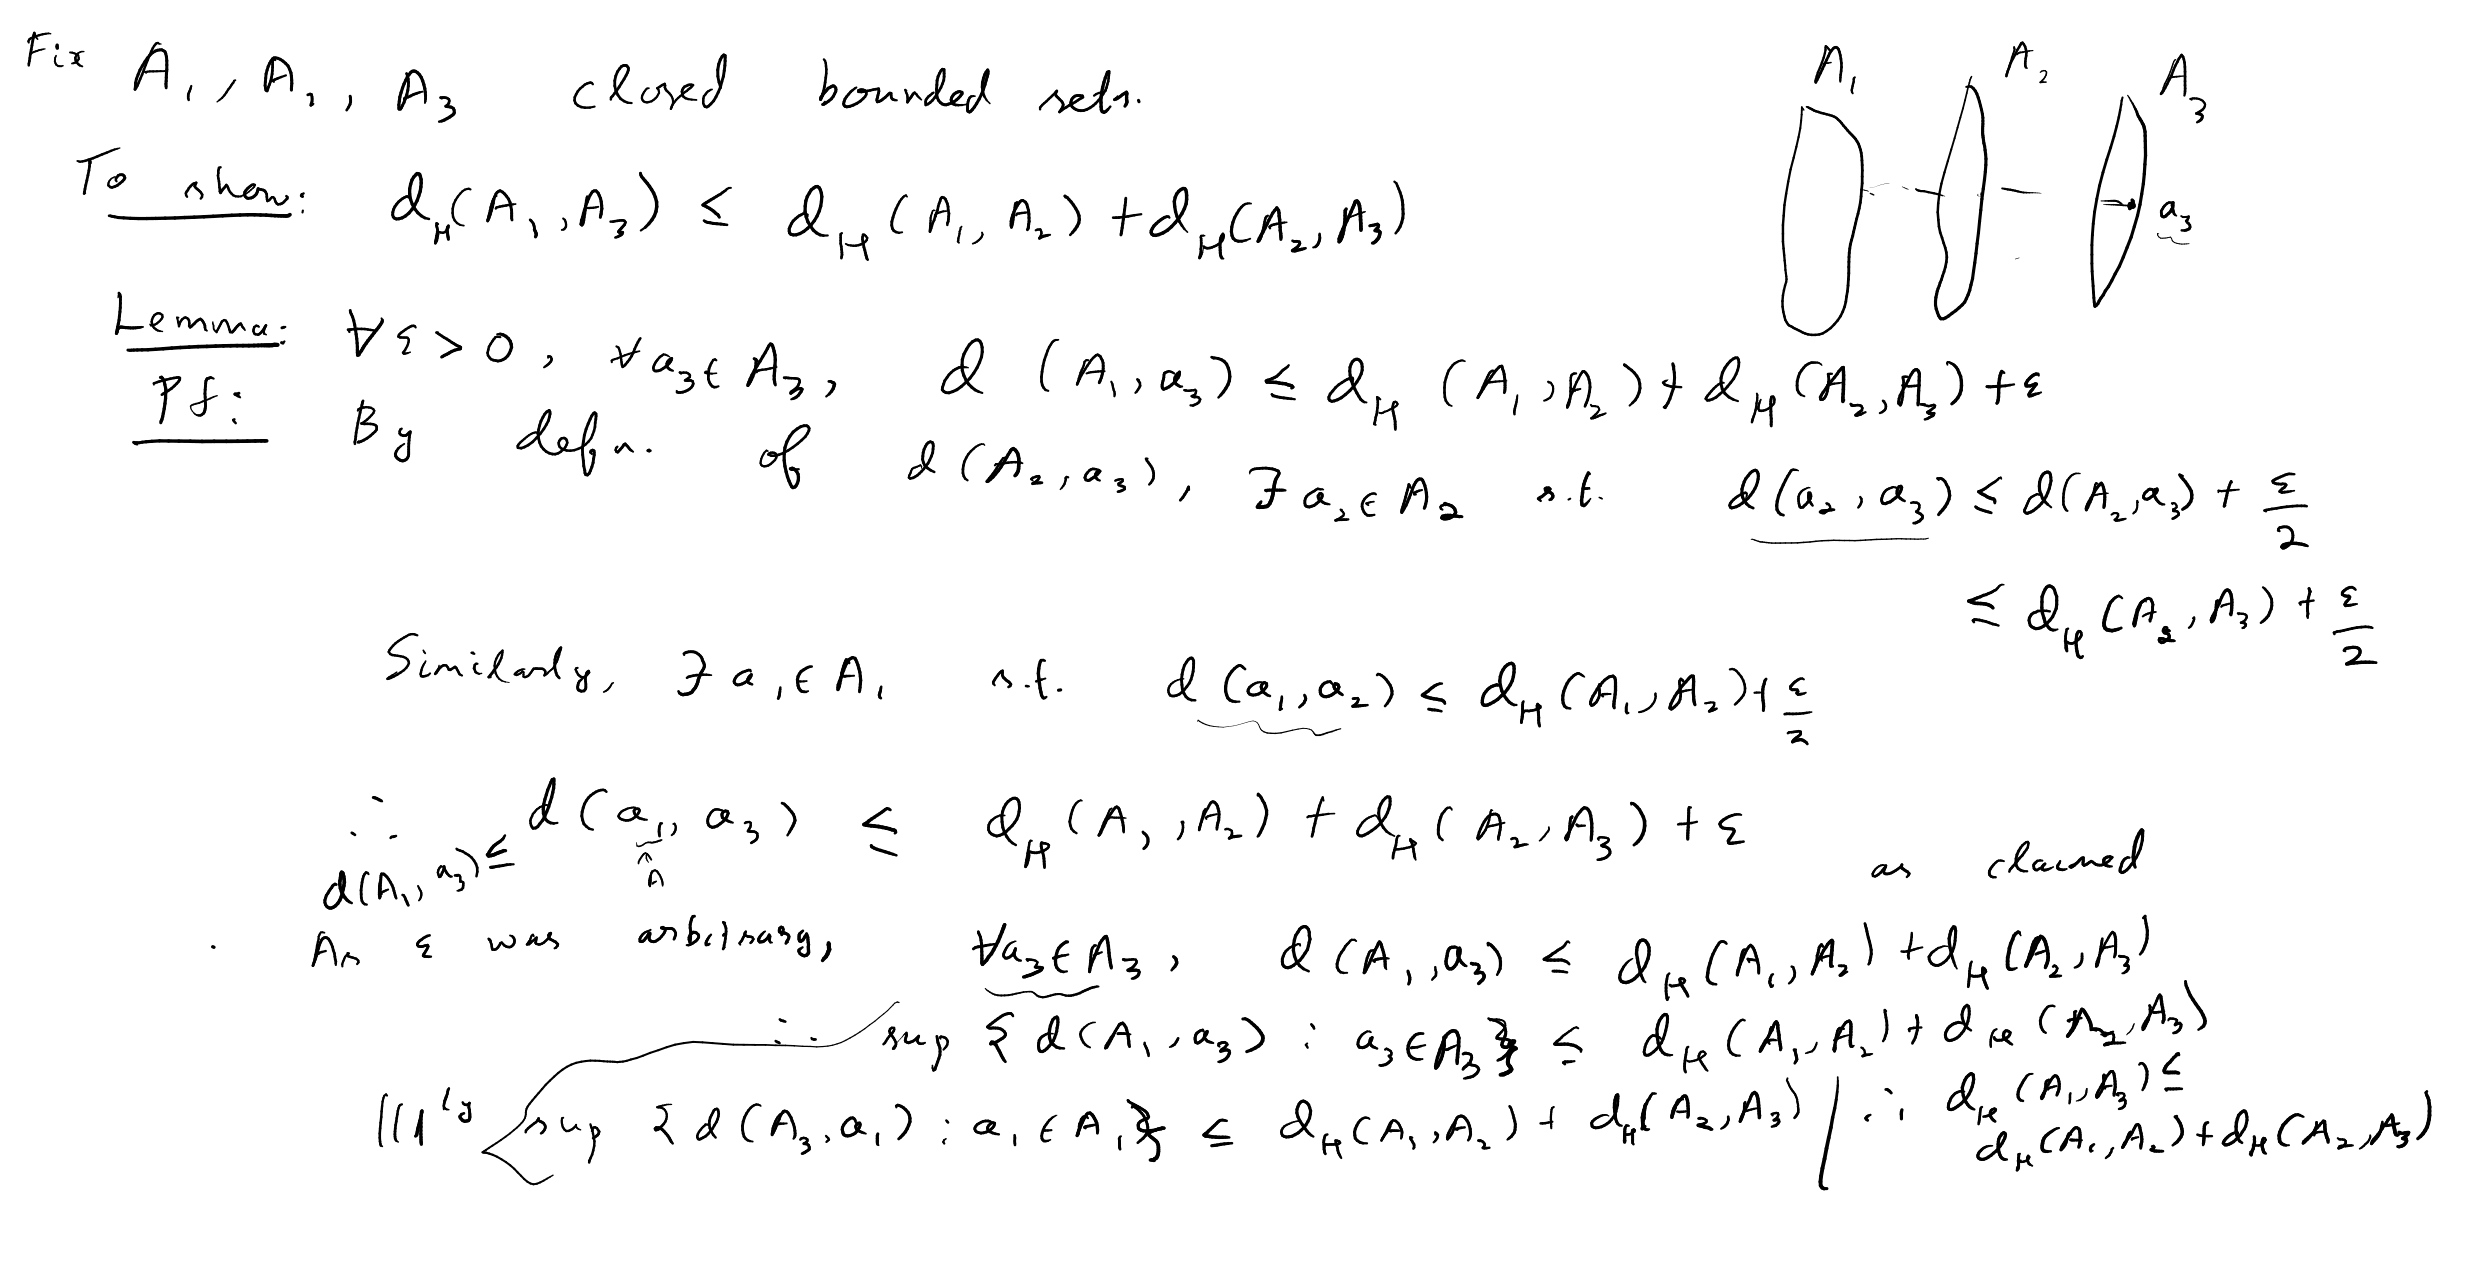 Fix A₁, A₂, A₃ closed bounded sets.
A₁ A₂ A₃
a₃
To show: d_H(A₁, A₃) ≤ d_H(A₁, A₂) + d_H(A₂, A₃)
Lemma: ∀ε > 0, ∀a₃ ∈ A₃, d(A₁, a₃) ≤ d_H(A₁, A₂) + d_H(A₂, A₃) + ε
Pf: By defn. of d(A₂, a₃), ∃ a₂ ∈ A₂ s.t. d(a₂, a₃) ≤ d(A₂, a₃) + ε/2
≤ d_H(A₂, A₃) + ε/2
Similarly, ∃ a₁ ∈ A₁ s.t. d(a₁, a₂) ≤ d_H(A₁, A₂) + ε/2
∴ d(A₁, a₃) ≤ d(a₁, a₃) ≤ d_H(A₁, A₂) + d_H(A₂, A₃) + ε as claimed
A
As ε was arbitrary, ∀a₃ ∈ A₃, d(A₁, a₃) ≤ d_H(A₁, A₂) + d_H(A₂, A₃)
∴ sup {d(A₁, a₃) : a₃ ∈ A₃} ≤ d_H(A₁, A₂) + d_H(A₂, A₃)
|||ˡʸ sup {d(A₃, a₁) : a₁ ∈ A₁} ≤ d_H(A₁, A₂) + d_H(A₂, A₃) | ∴ d_H(A₁, A₃) ≤
d_H(A₁, A₂) + d_H(A₂, A₃)